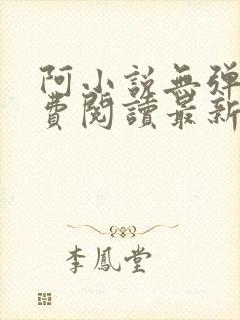 阿小説無弹
費閱讀最新
李鳳堂